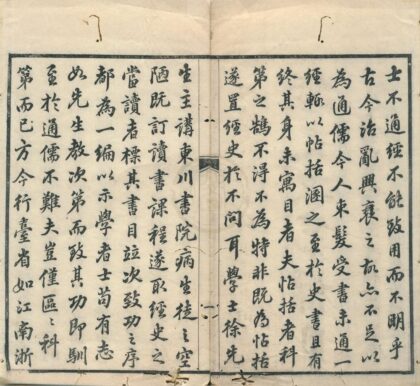 士不通經不能致用而不明乎
古今治亂興衰之故亦不足以
為通儒今人束髮受書未通一
經輒以帖括溷之至於史書且有
終其身未寓目者夫帖括者科
第之鵠不得不為特非既為帖括
遂置經史於不問耳學士徐先
生主講東川書院病生徒之空
陋既訂讀書課程遂取經史之
當讀者標其書目並次致功之序
都為一編以示學者士苟有志
如先生教次第而致其功即馴
至於通儒不難夫豈僅區區之科
第而已方今行臺省如江南浙
一